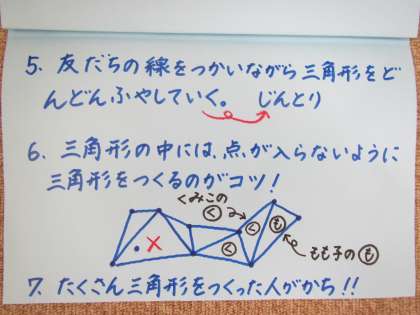 5. 友だちの線をつかいながら三角形をど
んどんふやしていく。 じんとり
6. 三角形の中には、点が入らないように
三角形をつくるのがコツ！
くみこの
く
く
も
×
く
もも子のも
7. たくさん三角形をつくった人がかち!!